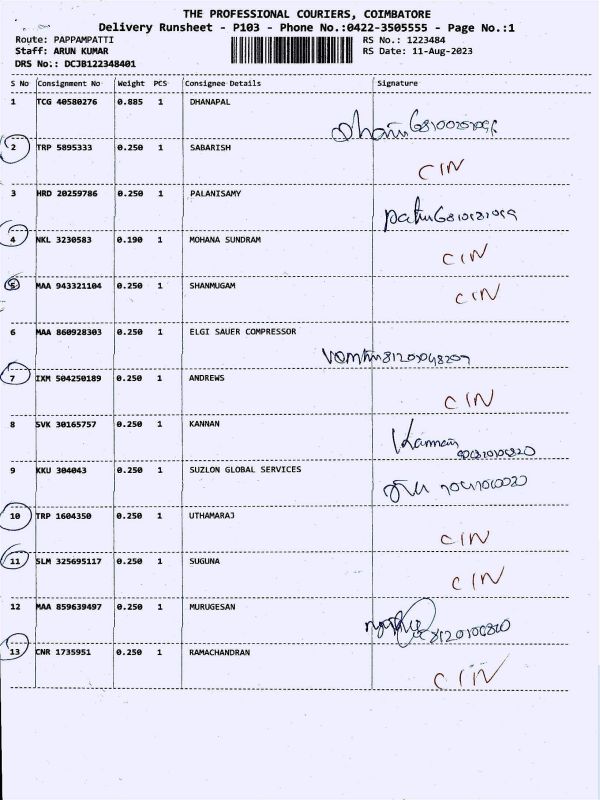 THE PROFESSIONAL COURIERS, COIMBATORE
Delivery Runsheet - P103 - Phone No.:0422-3505555 - Page No.:1
Route: PAPPAMPATTI RS No.: 1223484
Staff: ARUN KUMAR RS Date: 11-Aug-2023
DRS No.: DCJB122348401
S No Consignment No Weight PCS Consignee Details Signature
1 TCG 40580276 0.885 1 DHANAPAL
2 TRP 5895333 0.250 1 SABARISH
CIN
3 HRD 20259786 0.250 1 PALANISAMY
4 NKL 3230583 0.190 1 MOHANA SUNDRAM
CIN
5 MAA 943321104 0.250 1 SHANMUGAM
CIN
6 MAA 860928303 0.250 1 ELGI SAUER COMPRESSOR
7 IXM 504250189 0.250 1 ANDREWS
CIN
8 SVK 30165757 0.250 1 KANNAN
Kannan
9 KKU 304043 0.250 1 SUZLON GLOBAL SERVICES
10 TRP 1604350 0.250 1 UTHAMARAJ
CIN
11 SLM 325695117 0.250 1 SUGUNA
CIN
12 MAA 859639497 0.250 1 MURUGESAN
13 CNR 1735951 0.250 1 RAMACHANDRAN
CIN